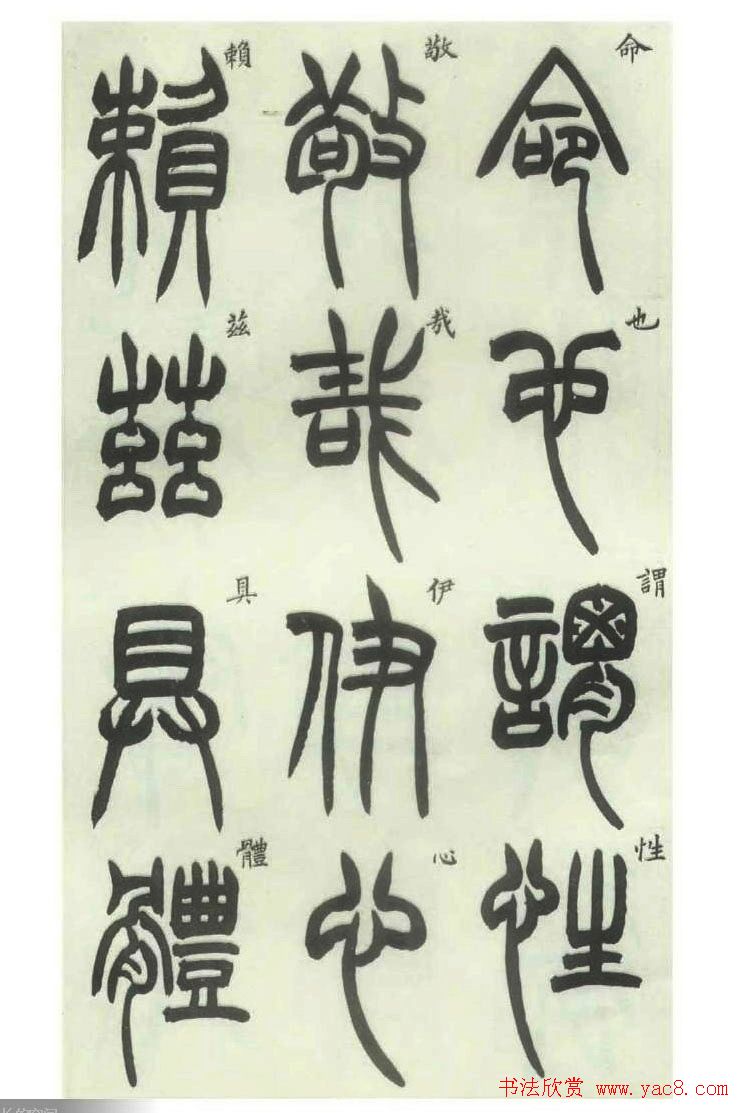 命也謂性
敬哉伊心
賴茲具體
书法欣赏 www.yac8.com